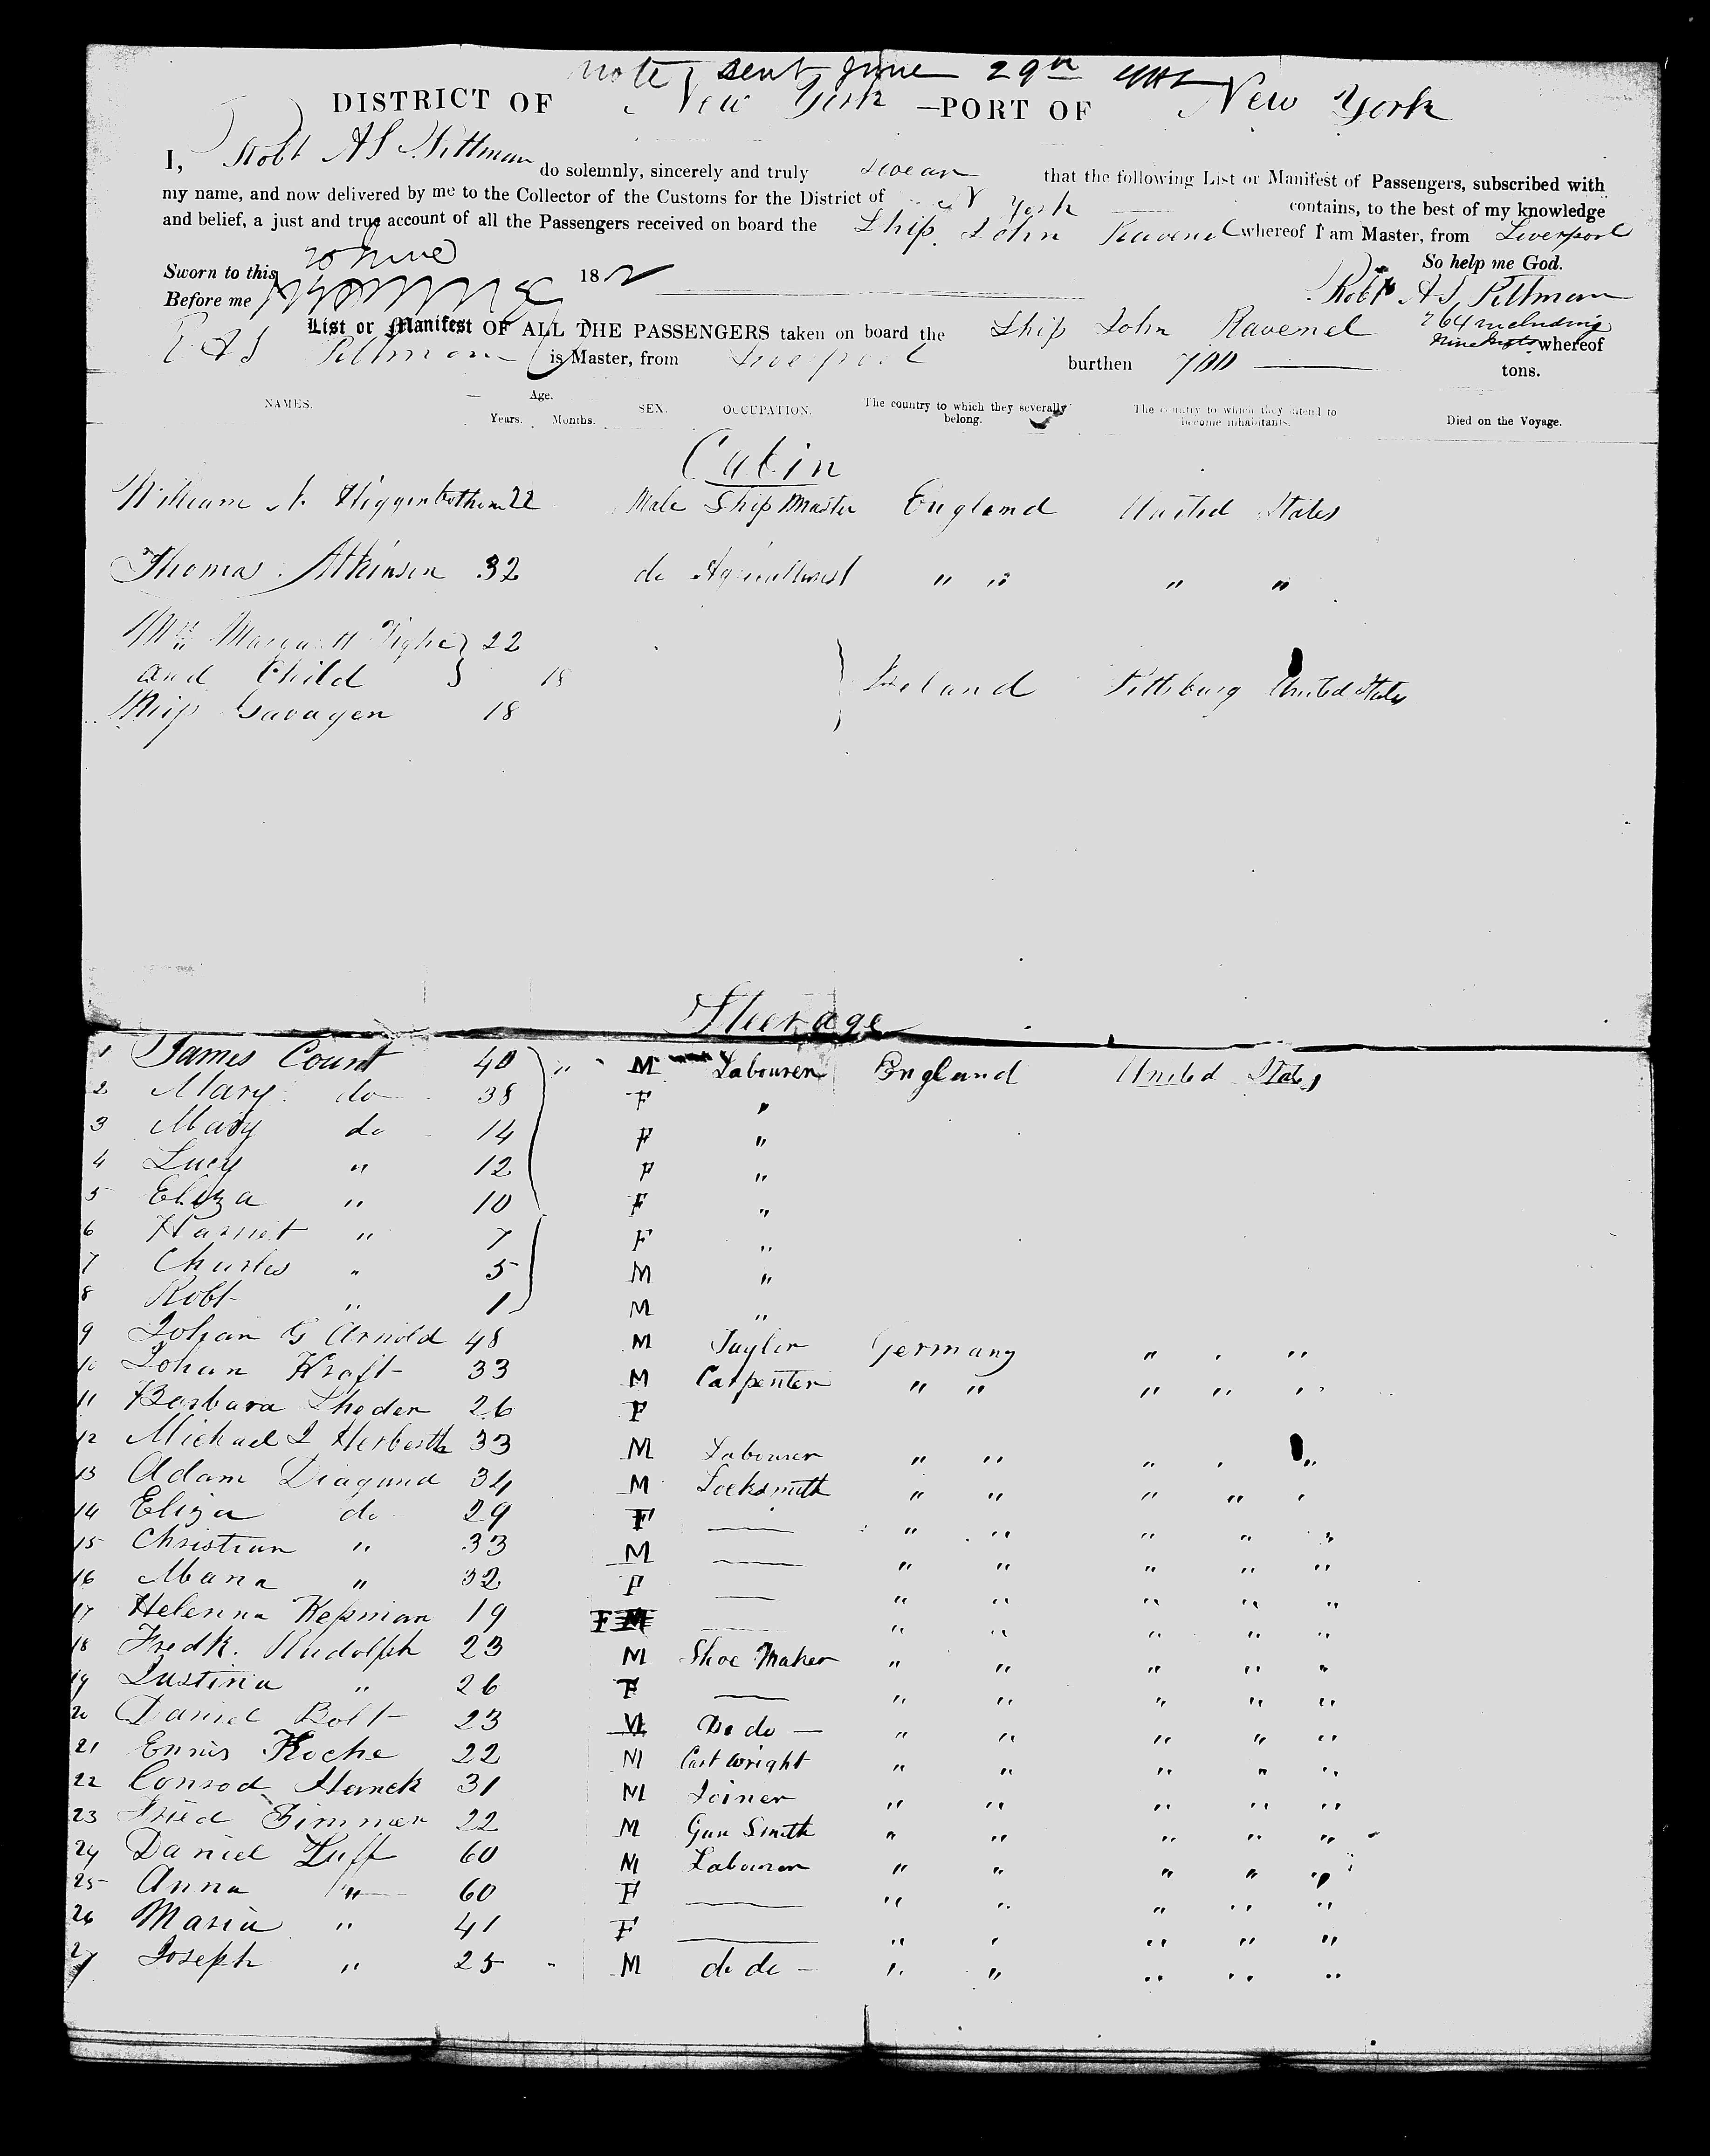 note sent June 29th
DISTRICT OF New York — PORT OF New York
I, Robt A S Pittman do solemnly, sincerely and truly swear that the following List or Manifest of Passengers, subscribed with
my name, and now delivered by me to the Collector of the Customs for the District of N York contains, to the best of my knowledge
and belief, a just and true account of all the Passengers received on board the Ship John Ravenel whereof I am Master, from Liverpool
So help me God.
Sworn to this June 18
Before me
Robt A S Pittman
List or Manifest OF ALL THE PASSENGERS taken on board the Ship John Ravenel 264 including whereof
R A S Pittman is Master, from Liverpool burthen 700 tons.
NAMES. Age. Years. Months. SEX. OCCUPATION. The country to which they severally belong. The country to which they intend to become inhabitants. Died on the Voyage.
Cabin
William Higginbothem 22 Male Ship Master England United States
Thomas Atkinson 32 do Agriculturist " " " "
Mrs Margarett Tighe } 22
and Child } 18 } Ireland Pittsburg United States
Miss Gavagen 18
Steerage
1 James Count 40 " M Labourer England United States
2 Mary do 38 F "
3 Mary do 14 F "
4 Lucy " 12 F "
5 Eliza " 10 F "
6 Harriet " 7 F "
7 Charles " 5 M "
8 Robt " 1 M "
9 Johan G Arnold 48 M Taylor Germany " " "
10 Johan Kraft 33 M Carpenter " " " " "
11 Barbara Shoder 26 F
12 Michael J Herberth 33 M Labourer " " " " "
13 Adam Diagund 34 M Locksmith " " " " "
14 Eliza do 29 F — " " " " "
15 Christian " 33 M — " " " " "
16 " 32 F — " " " " "
17 Helenna Kessman 19 F — " " " " "
18 Fredk. Rudolph 23 M Shoe Maker " " " " "
19 Justina " 26 F — " " " " "
20 Daniel Bolt 23 M Do do — " " " " "
21 Koche 22 M Cart Wright " " " " "
22 Conrod 31 M Joiner " " " " "
23 Fried Zimmer 22 M Gun Smith " " " " "
24 Daniel Luff 60 M Labourer " " " " "
25 Anna " 60 F — " " " " "
26 Maria " 41 F — " " " " "
27 Joseph " 25 " M do do — " " " " "